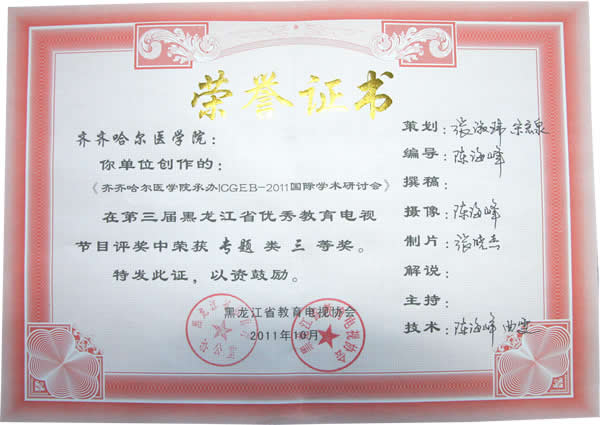 荣誉证书
齐齐哈尔医学院：
你单位创作的：
《齐齐哈尔医学院承办ICGEB-2011国际学术研讨会》
在第三届黑龙江省优秀教育电视
节目评奖中荣获 专题 类 三 等奖。
特发此证，以资鼓励。
黑龙江省教育电视协会
2011年10月
策划：张淑
编导：陈海峰
撰稿：
摄像：陈海峰
制片：张晓杰
解说：
主持：
技术：陈海峰